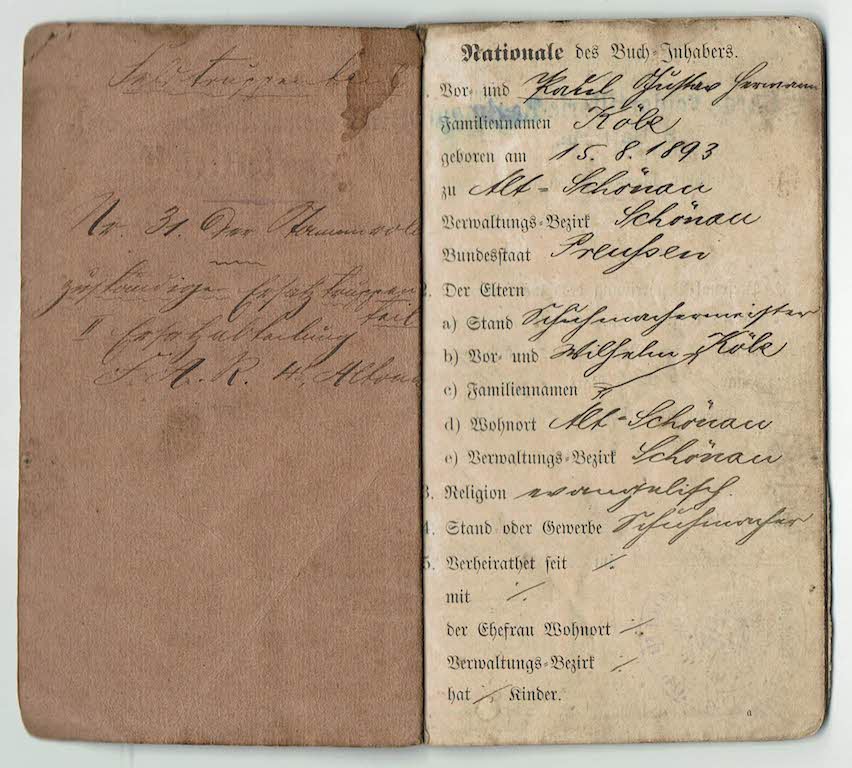 Nr. 31. der
zuständiger Ersatztruppen
teil
II Ersatzabteilung
F. A. R. Altona
Nationale des Buch-Inhabers.
1. Vor- und Paul Gustav Hermann
Familiennamen Kölbe
geboren am 15. 8. 1893
zu Alt-Schönau
Verwaltungs-Bezirk Schönau
Bundesstaat Preußen
2. Der Eltern
a) Stand Schuhmachermeister
b) Vor- und Wilhelm Kölbe
c) Familiennamen
d) Wohnort Alt-Schönau
e) Verwaltungs-Bezirk Schönau
3. Religion evangelisch.
4. Stand oder Gewerbe Schuhmacher
5. Verheirathet seit ·/.
mit ·/.
der Ehefrau Wohnort ·/.
Verwaltungs-Bezirk ·/.
hat ·/. Kinder.
a